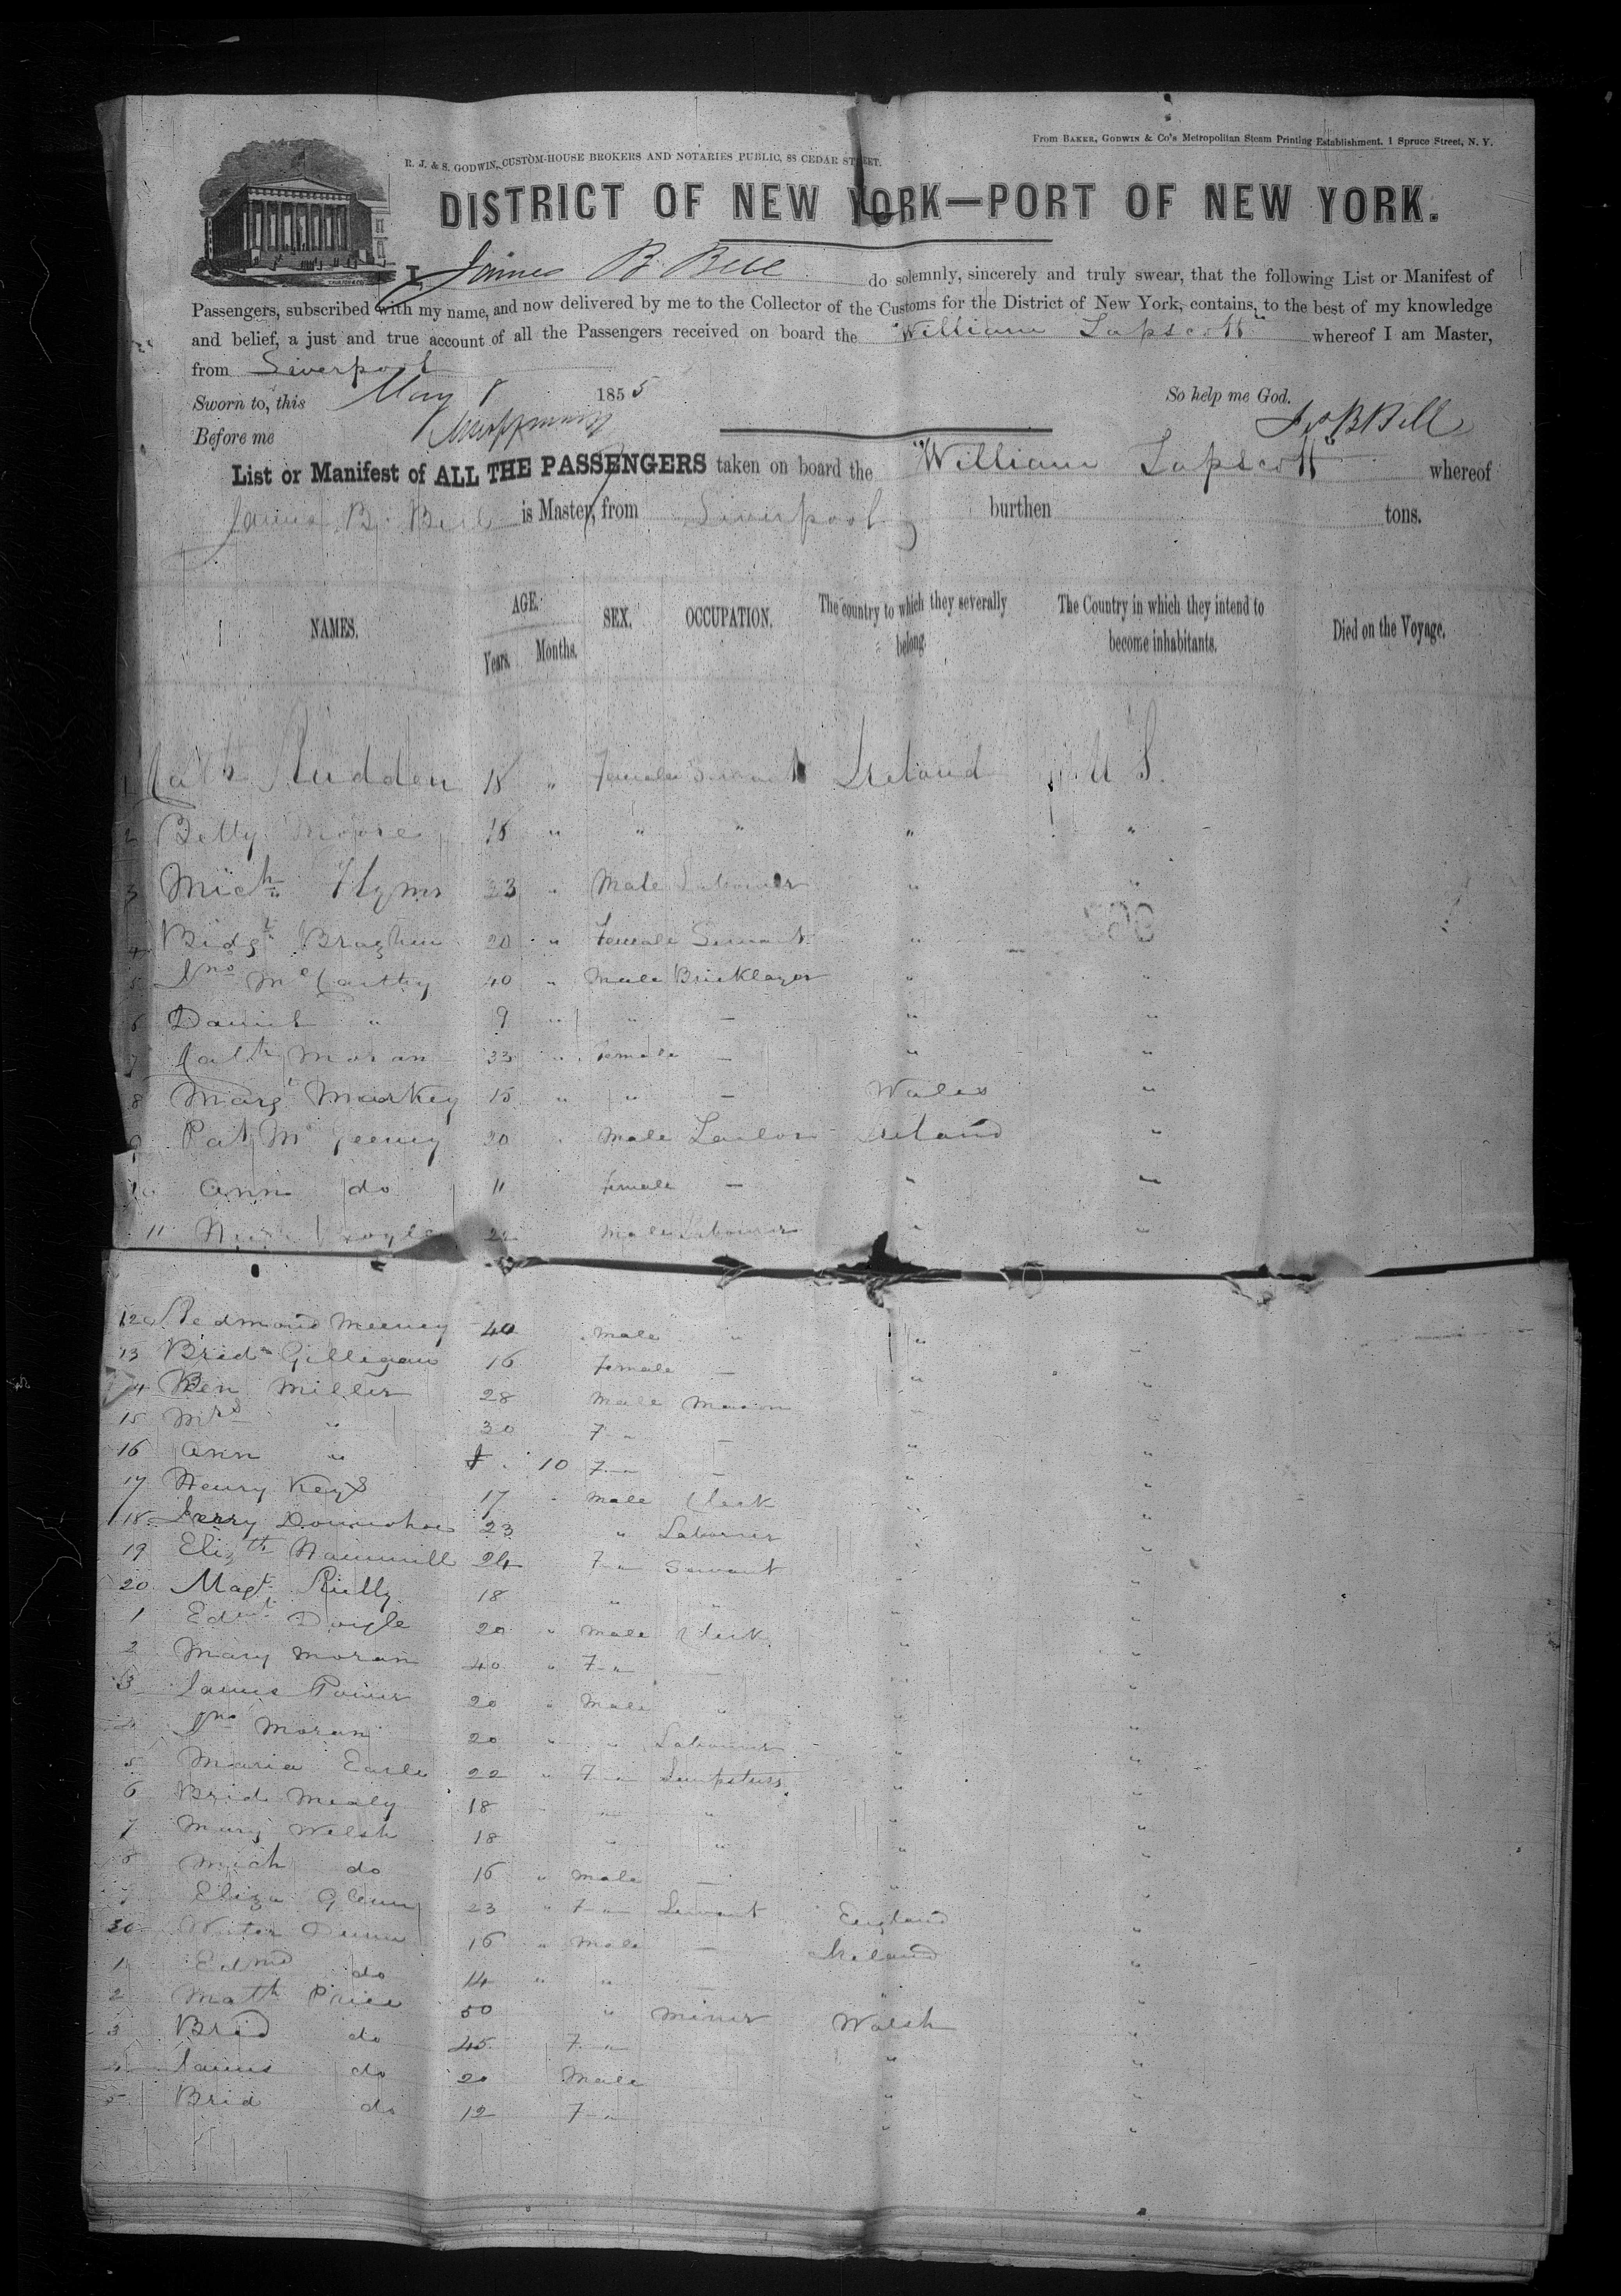 From BAKER, GODWIN & Co's Metropolitan Steam Printing Establishment, 1 Spruce Street, N. Y.
R. J. & S. GODWIN, CUSTOM-HOUSE BROKERS AND NOTARIES PUBLIC, 88 CEDAR STREET.
DISTRICT OF NEW YORK—PORT OF NEW YORK.
I, James B Bell do solemnly, sincerely and truly swear, that the following List or Manifest of
Passengers, subscribed with my name, and now delivered by me to the Collector of the Customs for the District of New York, contains, to the best of my knowledge
and belief, a just and true account of all the Passengers received on board the "William Tapscott" whereof I am Master,
from Liverpool
Sworn to, this May 8 1855 So help me God.
Before me Js B Bell
List or Manifest of ALL THE PASSENGERS taken on board the "William Tapscott" whereof
James B. Bell is Master, from Liverpool burthen tons.
NAMES. AGE. Years. Months. SEX. OCCUPATION. The country to which they severally belong. The Country in which they intend to become inhabitants. Died on the Voyage.
1 Cath Rudden 18 " Female Servant Ireland U S.
2 Betty Moore 18 " " " " "
3 Mich Flynn 23 " Male Labourer " "
4 Bidgt 20 " Female Servant " "
5 Jno McCarthy 40 " Male Bricklayer " "
6 Daniel " 9 " " — " "
7 Cath Moran 33 " Female — " "
8 Margt Markey 15 " " — Wales "
9 Pat McGeeny 20 " Male Ireland "
10 Ann do 11 Female — " "
11 22 Male Labourer " "
12 Redmond Meeney 40 Male " " "
13 Brid Gilligan 16 Female — " "
14 Ben Miller 28 Male Mason " "
15 Mrs " 30 F " — " "
16 Ann " 10 F " — " "
17 Henry Keys 17 " Male Clerk " "
18 Jerry Donnohoe 23 " Labourer " "
19 Elizth Hammill 24 F " Servant " "
20 Magt Reilly 18 " " " "
1 Edmd Doyle 20 " Male Clerk " "
2 Mary Moran 40 " F " — " "
3 James Power 20 " Male " " "
4 Jno Moran 20 " " Labourer " "
5 Maria Earle 22 " F " Sempstress " "
6 Brid Mealy 18 " " " "
7 Mary Welsh 18 " " " "
8 Mich do 16 " Male — " "
9 Eliza Glenn 23 " F " Servant England "
30 Dunn 16 " Male — Ireland "
1 Edmd do 14 " " — " "
2 Math Price 50 " Miner Welsh "
3 Brid do 45 F " " "
4 James do 20 Male " "
5 Brid do 12 F " " "